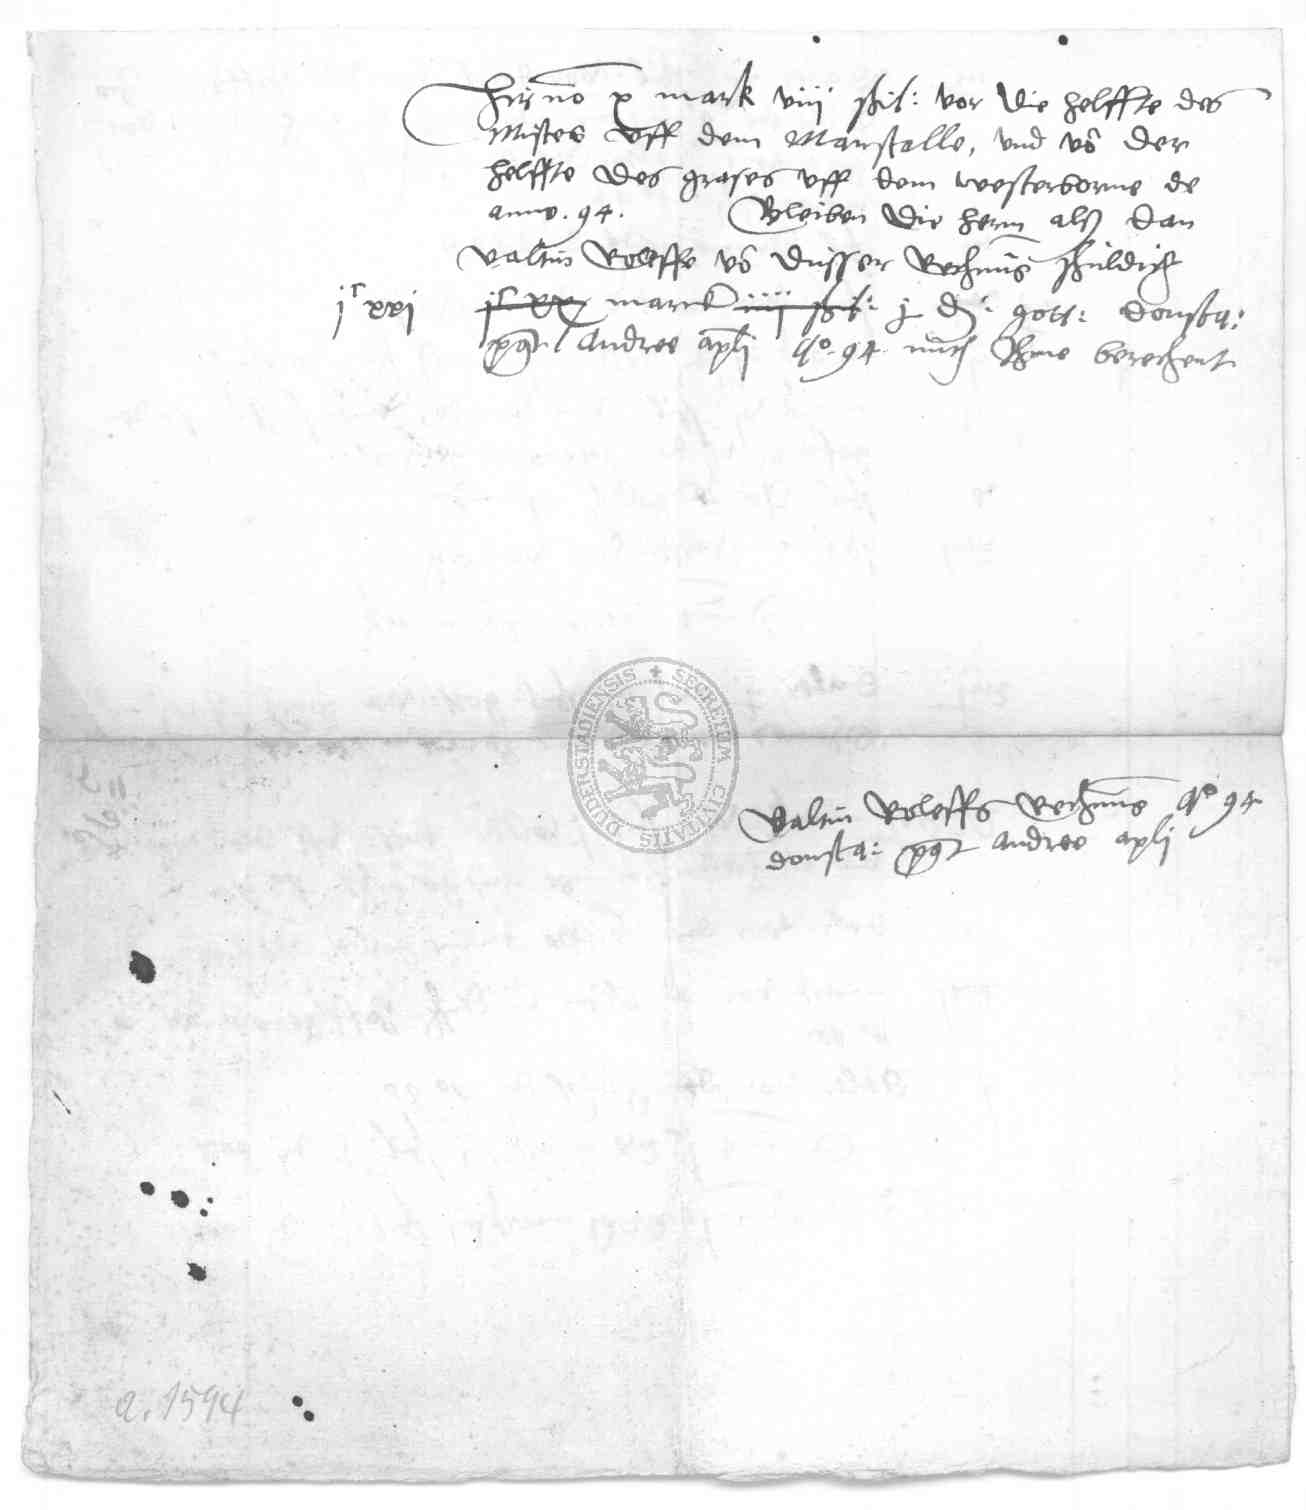 Hir no x mark viiij shil: vor die helffte des
Mistes uff dem Marstalle, und vō der
helffte des grases uff dem westerborne de
anno .94. Bleiben die hern alß dan
Valtin Roleffs vō dusser Rechnūg schuldich
jc xxj jc xx marck iiij shil: j d: gots: donstag:
pq̄t Andree apl̄i Ao. 94. mith Ihme berechent
SECRETUM CIVITATIS DUDERSTADIENSIS
Valtin Roleffs Rechnūg Ao 94
donstag: pq̄t Andree apl̄i
a. 1594